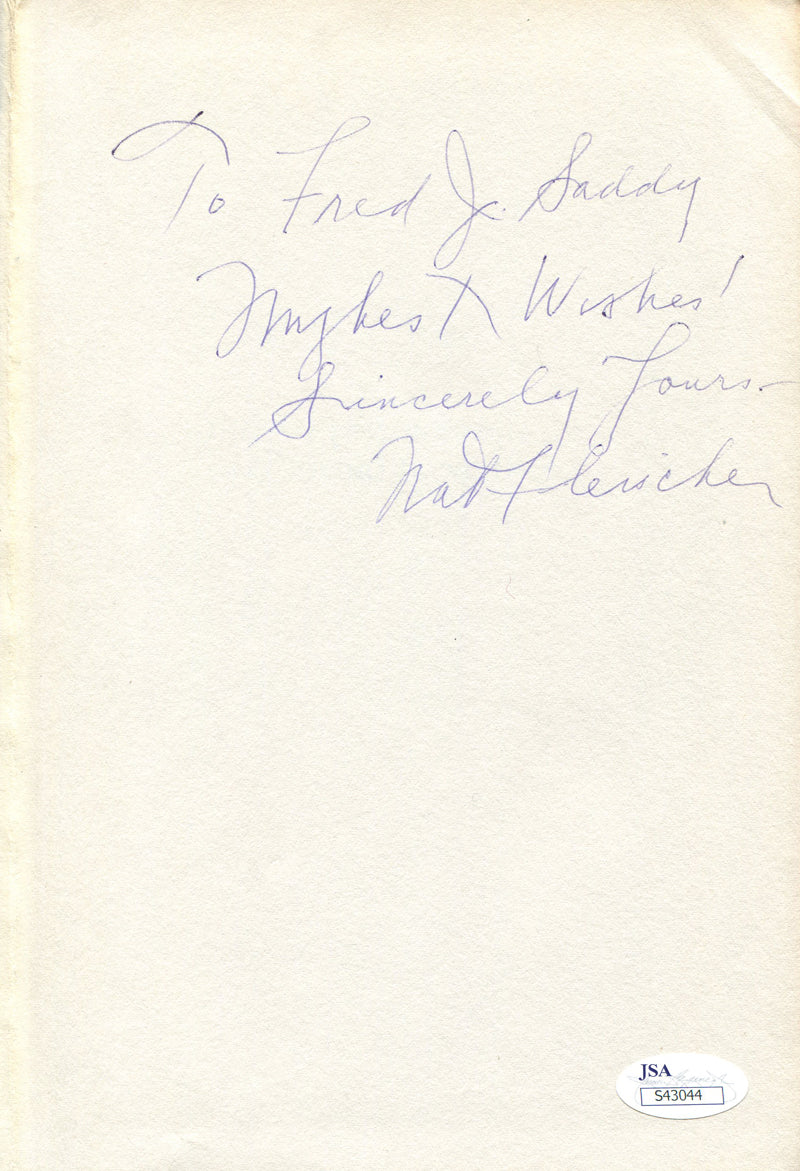 To Fred J. Saddy
Highest Wishes!
Sincerely Yours-
Nat Fleischer
JSA
S43044